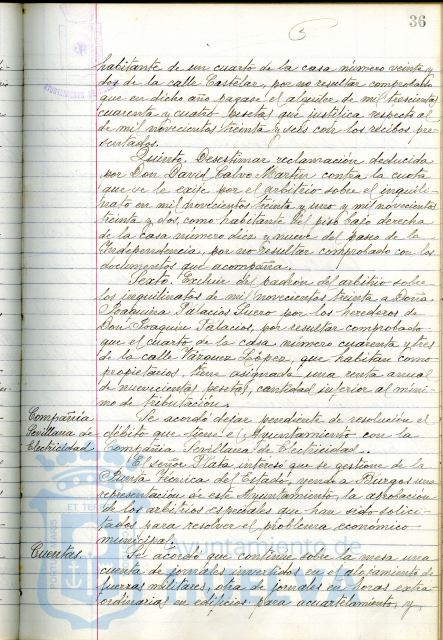 36
habitante de un cuarto de la casa número veinte y
dos de la calle Castelar, por no resultar comprobado
que en dicho año pagase el alquiler de mil trescientas
cuarenta y cuatro pesetas que justifica respecto al
de mil novecientos treinta y seis con los recibos pre-
sentados.
Quinto. Desestimar reclamación deducida
por Don David Calvo Martín contra la cuota
que se le exije por el arbitrio sobre el inquili-
nato en mil novecientos treinta y uno y mil novecientos
treinta y dos, como habitante del piso bajo derecha
de la casa número diez y nueve del paseo de la
Independencia, por no resultar comprobado con los
documentos que acompaña.
Sexto. Excluir del padrón del arbitrio sobre
los inquilinatos de mil novecientos treinta a Doña
Joaquina Palacios Suero por los herederos de
Don Joaquín Palacios, por resultar comprobado
que el cuarto de la casa número cuarenta y tres
de la calle Vázquez López, que habitan como
propietarios, tiene asignada una renta anual
de nuevecientas pesetas, cantidad inferior al míni-
mo de tributación.
Compañía
Sevillana de
Electricidad
Se acordó dejar pendiente de resolución el
débito que tiene el Ayuntamiento con la
Compañía Sevillana de Electricidad.
El Señor Plata interesó que se gestione de la
Junta técnica del Estado, yendo a Burgos una
representación de este Ayuntamiento, la aprobación
de los arbitrios especiales que han sido solici-
tados para resolver el problema económico
municipal.
Cuentas.
Se acordó que continúe sobre la mesa una
cuenta de jornales invertidos en el alojamiento de
fuerzas militares, otra de jornales en horas extra-
ordinarias en edificios para acuartelamiento, y